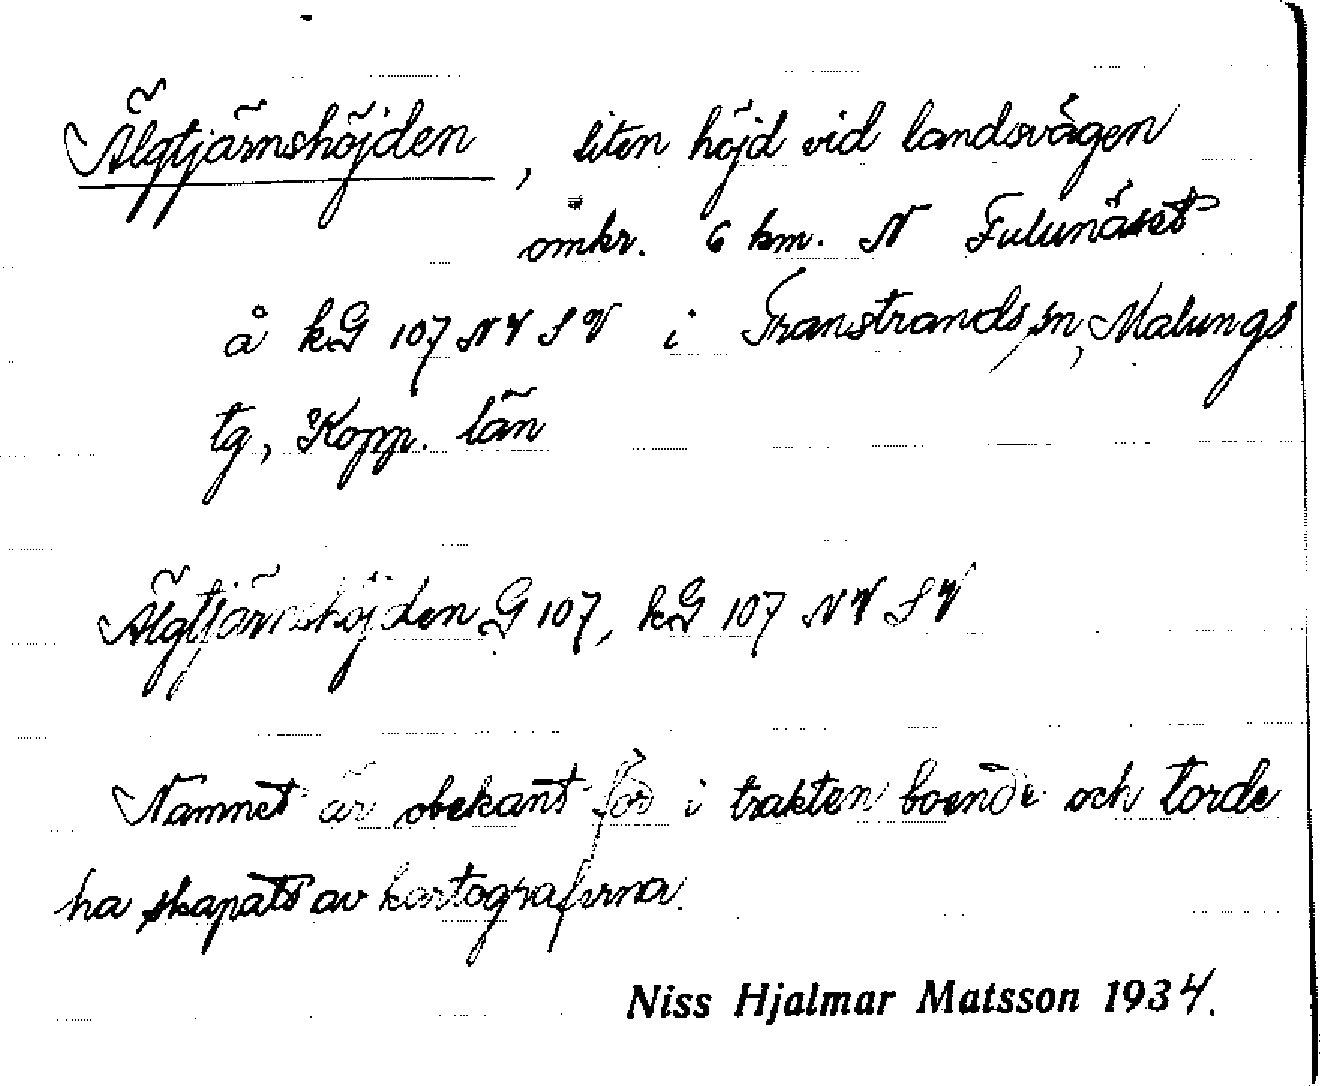 Älgtjärnshöjden, liten höjd vid landsvägen
omkr. 6 km. N Fulunäset
å kG 107 NV SV i Transtrands sn, Malungs
tg, Kopp. län
Älgtjärnshöjden G 107, kG 107 NV SV
Namnet är obekant för i trakten boende och torde
ha skapats av kartograferna.
Niss Hjalmar Matsson 1934.